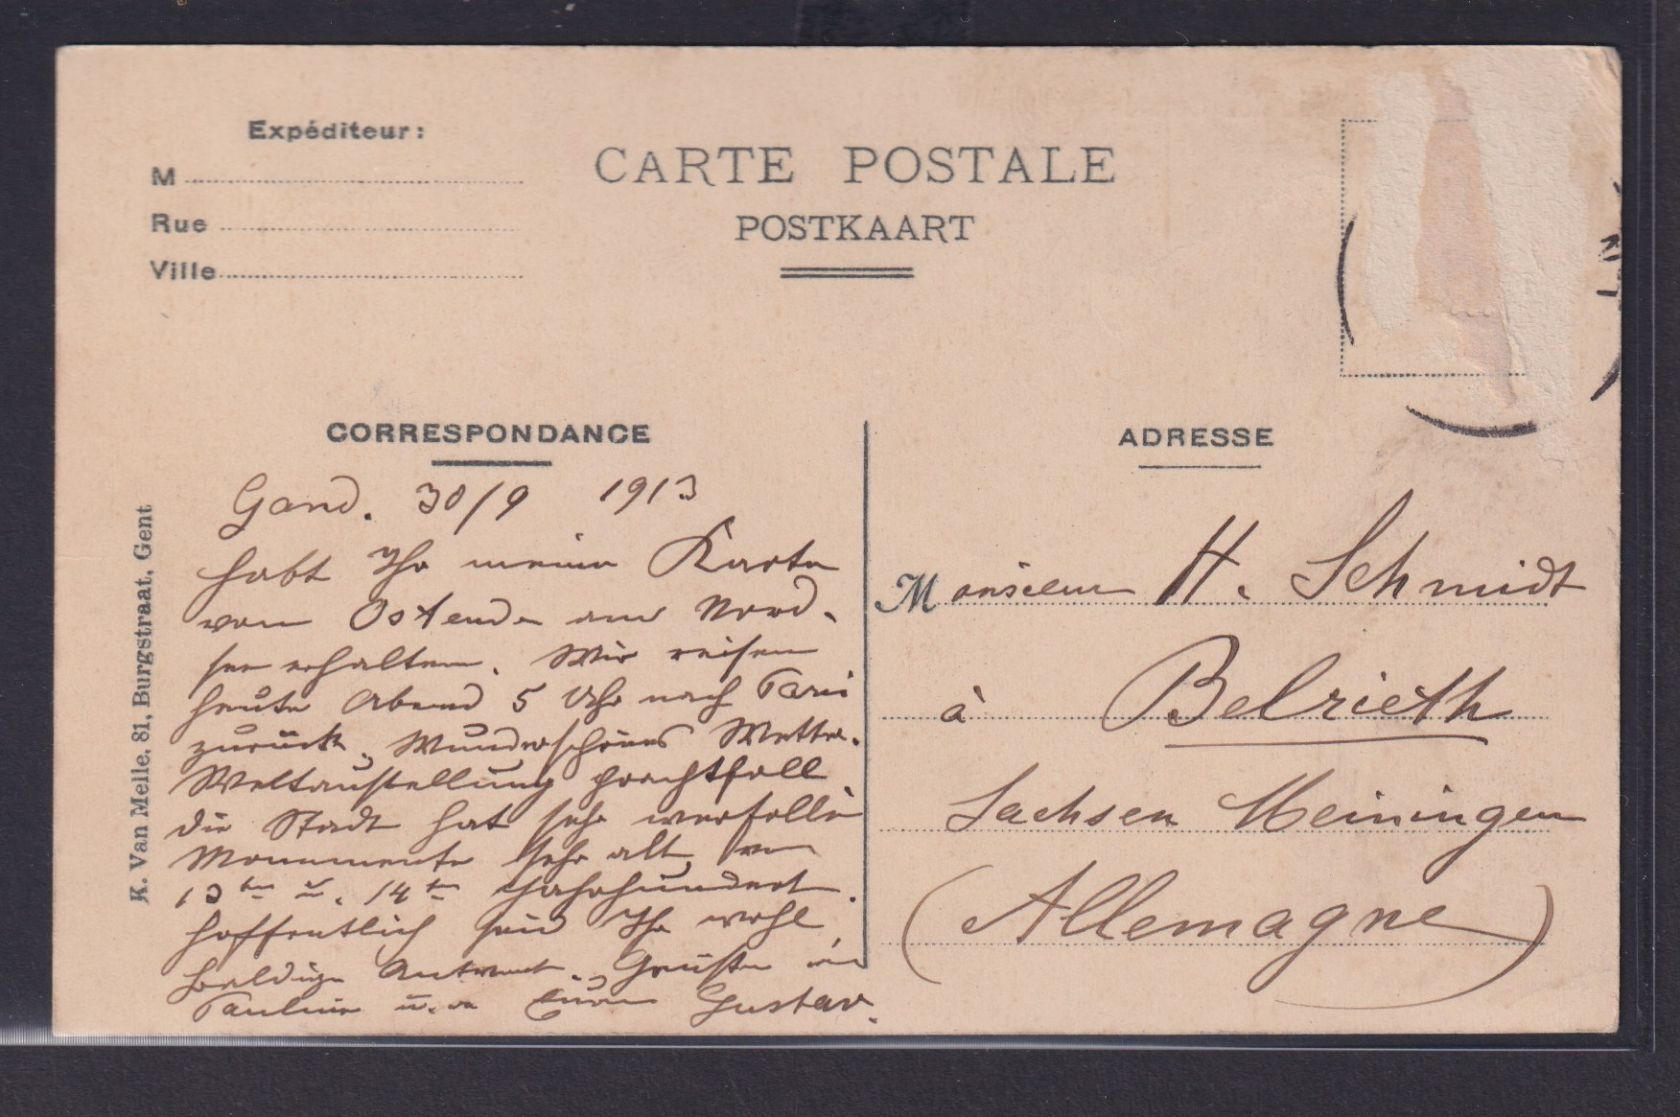 Expéditeur:
M
Rue
Ville
CARTE POSTALE
POSTKAART
CORRESPONDANCE
Gand. 30/9 1913
habt Ihr meine Karte
von Ostende am Nord-
see erhalten. Wir reisen
heute Abend 5 Uhr nach Paris
zurück. Wunderschönes Wetter.
Weltausstellung prachtfoll
die Stadt hat sehr
Monumente sehr alt, vom
13ten u. 14ten Jahrhundert.
hoffentlich seid Ihr wohl,
baldige Antwort. Grüße
Pauline u. Gustav.
K. Van Melle, 81, Burgstraat, Gent
ADRESSE
Monsieur H. Schmidt
à Belrieth
Sachsen Meiningen
(Allemagne)